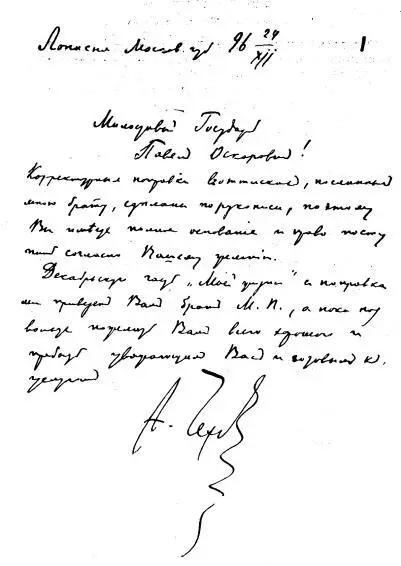 Лопасня Москов. губ 96 24/XII 1
Милостивый Государь
Павел Осипович!
Корректурные поправки, посланные
мною брату, сделаны по рукописи, поэтому
Вы имеете полное основание и право посту
пать согласно Вашему решению.
Декабрьскую часть „Моей жизни" с поправка
ми привезет Вам брат М. П., а пока поз
вольте пожелать Вам всего хорошего и
пребыть уважающим Вас и готовым к
услугам
А. Чехов